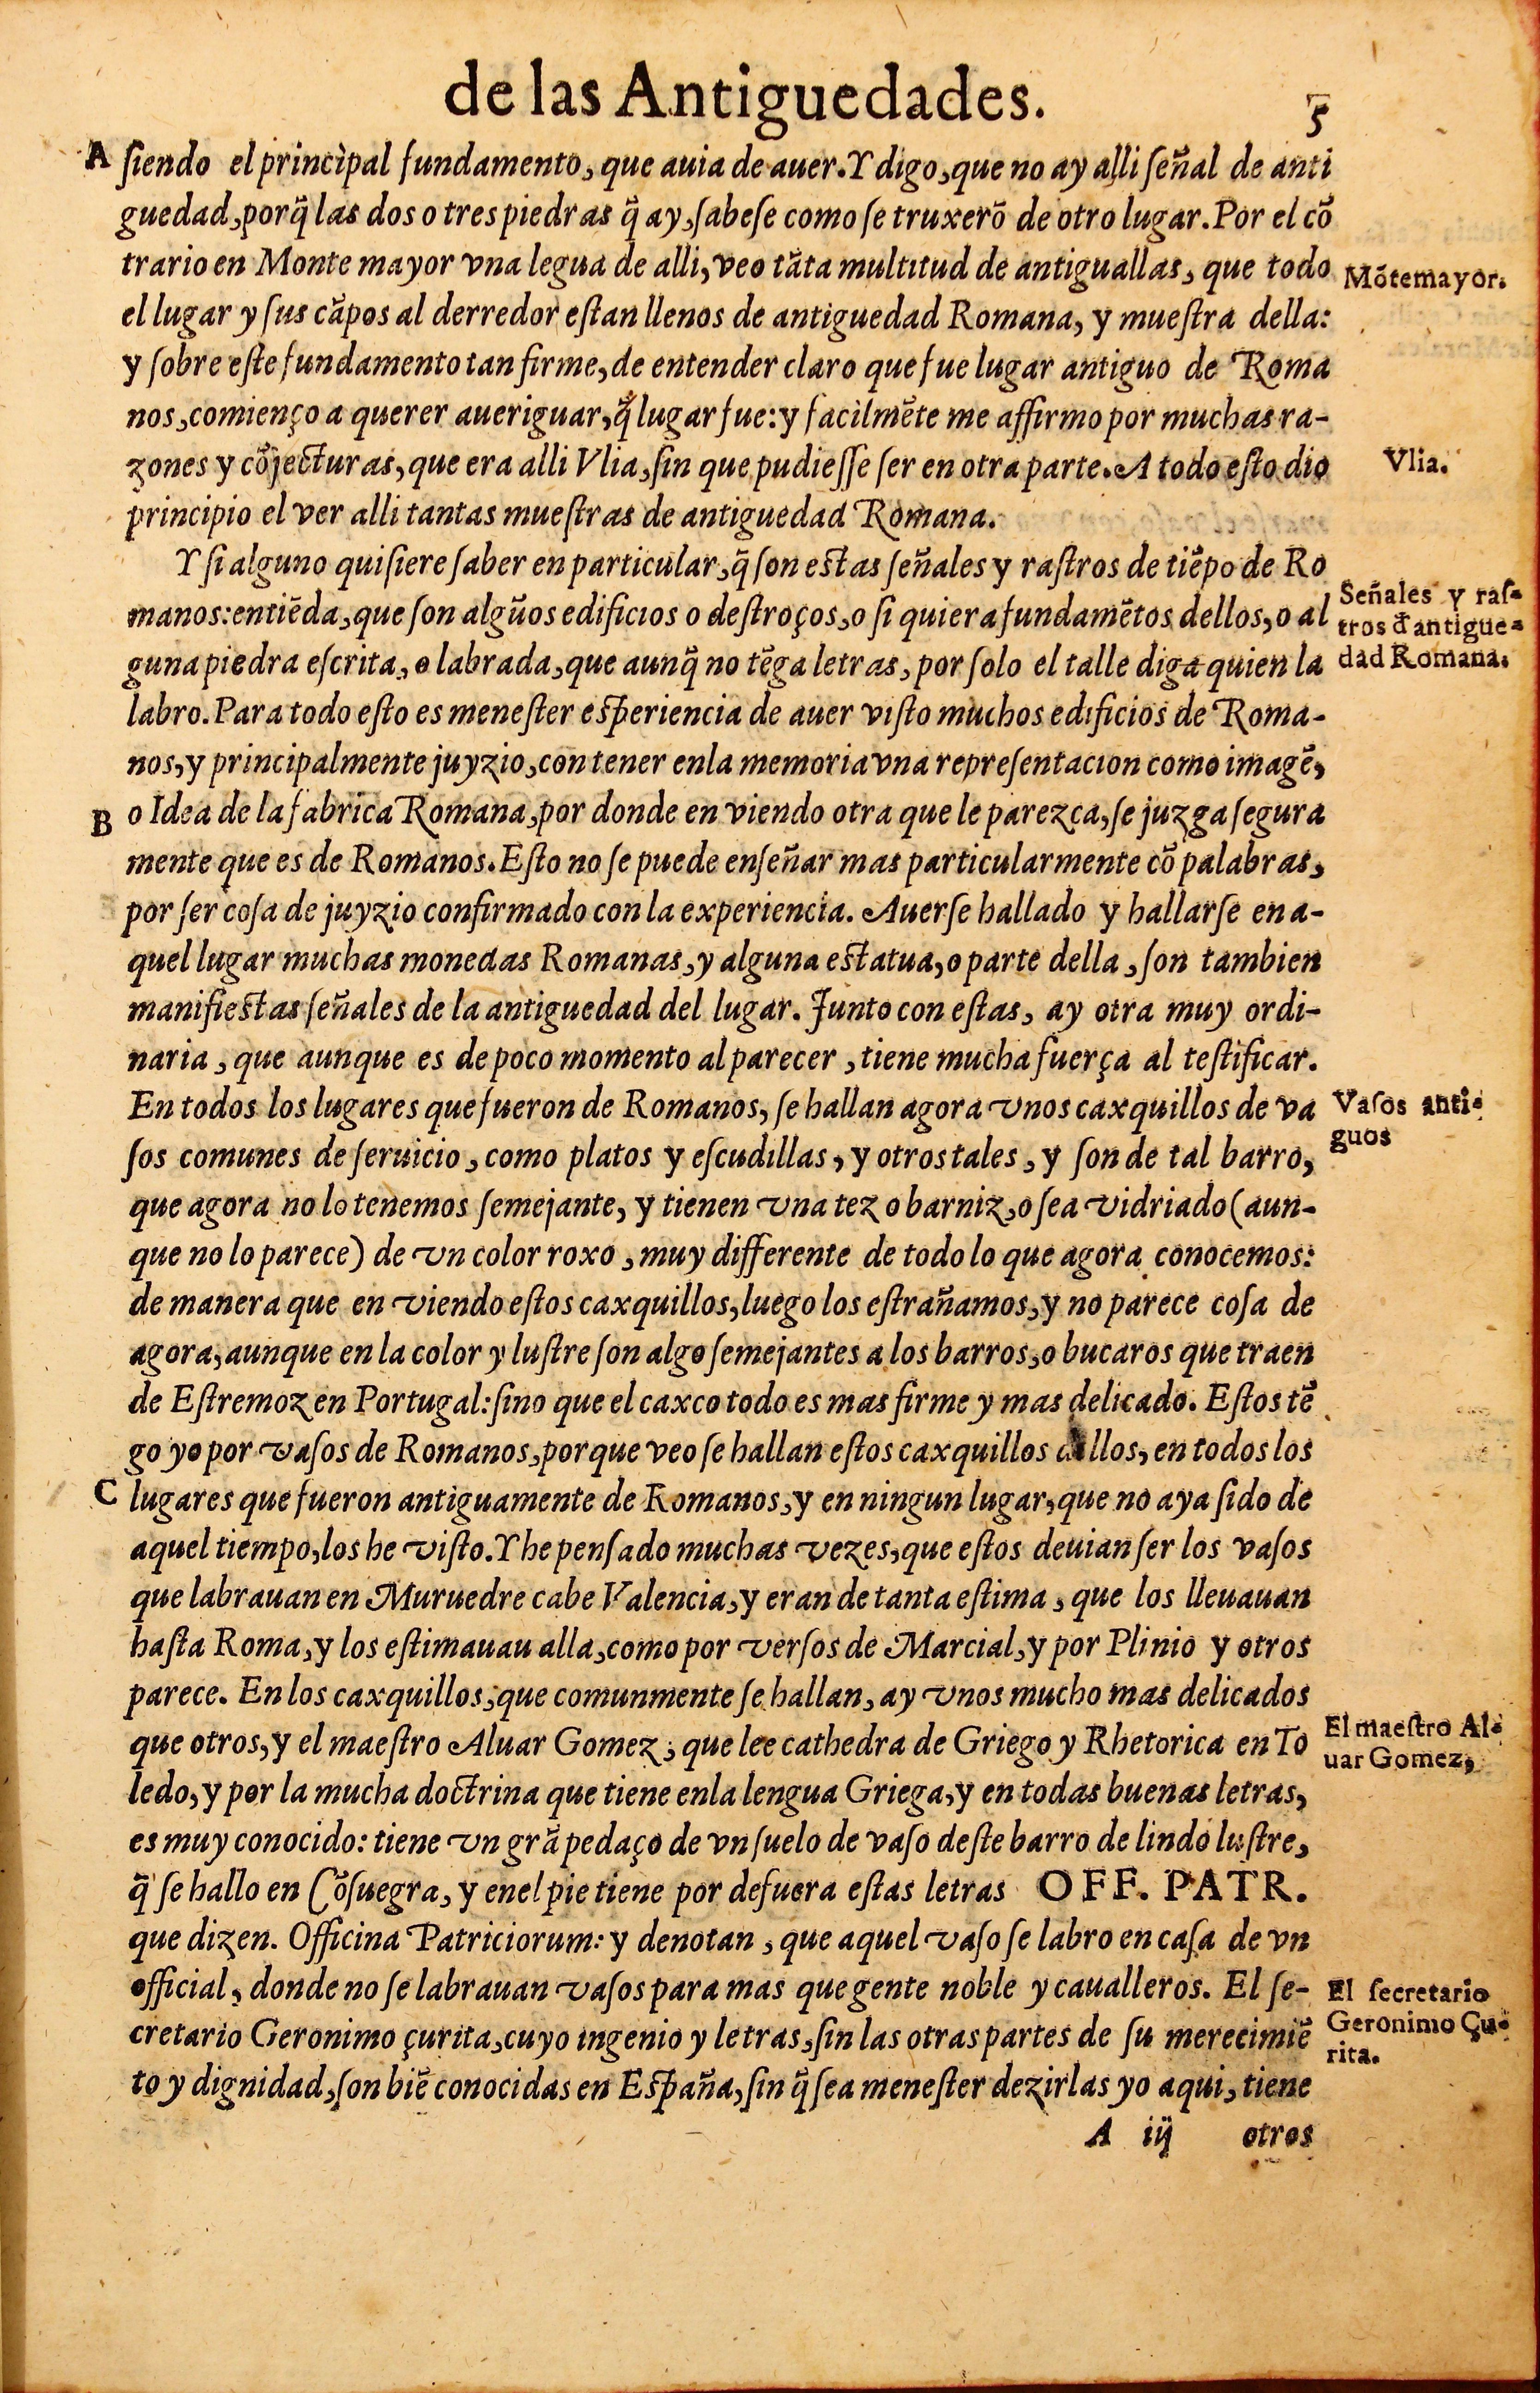 de las Antiguedades.
5
A ſiendo el principal fundamento, que auia de auer. Y digo, que no ay alli ſeñal de anti
guedad, porq̃ las dos o tres piedras q̃ ay, ſabeſe como ſe truxerõ de otro lugar. Por el cõ
trario en Monte mayor vna legua de alli, veo tãta multitud de antiguallas, que todo
Mõtemayor.
el lugar y ſus cãpos al derredor eſtan llenos de antiguedad Romana, y mueſtra della:
y ſobre eſte fundamento tan firme, de entender claro que fue lugar antiguo de Roma
nos, comienço a querer aueriguar, q̃ lugar fue: y facilmẽte me affirmo por muchas ra-
zones y cõjecturas, que era alli Vlia, ſin que pudieſſe ſer en otra parte. A todo eſto dio
Vlia.
principio el ver alli tantas mueſtras de antiguedad Romana.
Y ſi alguno quiſiere ſaber en particular, q̃ ſon estas ſeñales y raſtros de tiẽpo de Ro
manos: entiẽda, que ſon algũos edificios o deſtroços, o ſi quiera fundamẽtos dellos, o al
Señales y raſ-
tros đ antigue-
dad Romana.
guna piedra eſcrita, o labrada, que aunq̃ no tẽga letras, por ſolo el talle diga quien la
labro. Para todo eſto es meneſter eſperiencia de auer viſto muchos edificios de Roma-
nos, y principalmente juyzio, con tener enla memoria vna repreſentacion como imagẽ,
B o Idea de la fabrica Romana, por donde en viendo otra que le parezca, ſe juzga ſegura
mente que es de Romanos. Eſto no ſe puede enſeñar mas particularmente cõ palabras,
por ſer coſa de juyzio confirmado con la experiencia. Auerſe hallado y hallarſe en a-
quel lugar muchas monedas Romanas, y alguna estatua, o parte della, ſon tambien
manifiestas ſeñales de la antiguedad del lugar. Junto con eſtas, ay otra muy ordi-
naria, que aunque es de poco momento al parecer, tiene mucha fuerça al teſtificar.
En todos los lugares que fueron de Romanos, ſe hallan agora vnos caxquillos de va
Vaſos anti-
guos
ſos comunes de ſeruicio, como platos y eſcudillas, y otros tales, y ſon de tal barro,
que agora no lo tenemos ſemejante, y tienen vna tez o barniz, o ſea vidriado (aun-
que no lo parece) de vn color roxo, muy differente de todo lo que agora conocemos:
de manera que en viendo eſtos caxquillos, luego los eſtrañamos, y no parece coſa de
agora, aunque en la color y luſtre ſon algo ſemejantes a los barros, o bucaros que traen
de Eſtremoz en Portugal: ſino que el caxco todo es mas firme y mas delicado. Eſtos tẽ
go yo por vaſos de Romanos, porque veo ſe hallan eſtos caxquillos dellos, en todos los
C lugares que fueron antiguamente de Romanos, y en ningun lugar, que no aya ſido de
aquel tiempo, los he viſto. Y he penſado muchas vezes, que eſtos deuian ſer los vaſos
que labrauan en Muruedre cabe Valencia, y eran de tanta eſtima, que los lleuauan
haſta Roma, y los eſtimauau alla, como por verſos de Marcial, y por Plinio y otros
parece. En los caxquillos, que comunmente ſe hallan, ay vnos mucho mas delicados
que otros, y el maeſtro Aluar Gomez, que lee cathedra de Griego y Rhetorica en To
El maeſtro Al-
uar Gomez,
ledo, y por la mucha doctrina que tiene enla lengua Griega, y en todas buenas letras,
es muy conocido: tiene vn grã pedaço de vn ſuelo de vaſo deſte barro de lindo luſtre,
q̃ ſe hallo en Cõſuegra, y enel pie tiene por defuera eſtas letras OFF. PATR.
que dizen. Officina Patriciorum: y denotan, que aquel vaſo ſe labro en caſa de vn
official, donde no ſe labrauan vaſos para mas que gente noble y caualleros. El ſe-
El ſecretario
Geronimo Çu-
rita.
cretario Geronimo çurita, cuyo ingenio y letras, ſin las otras partes de ſu merecimiẽ
to y dignidad, ſon biẽ conocidas en Eſpaña, ſin q̃ ſea meneſter dezirlas yo aqui, tiene
A iij otros